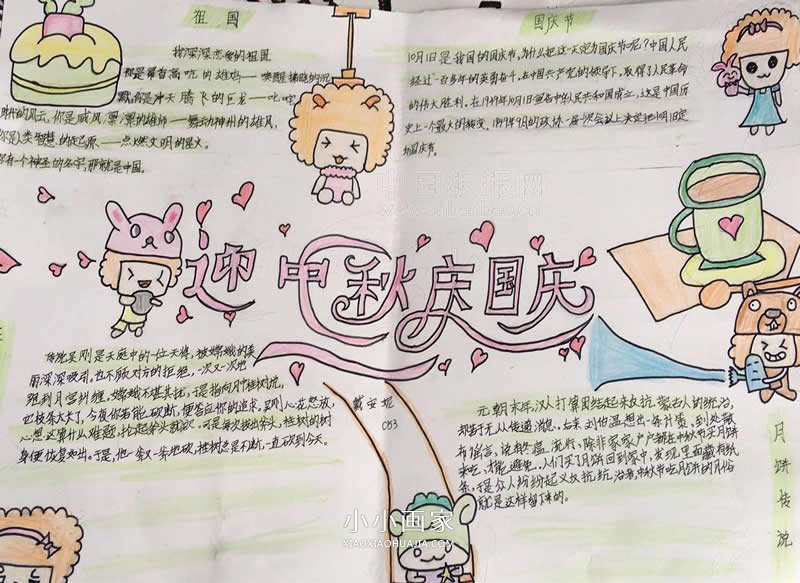 祖国
我深深恋爱的祖国
你是昂首高吭的雄鸡——唤醒拂晓的沉
默,你是冲天腾飞的巨龙——叱咤
时代的风云,你是威风凛凛的雄狮——舞动神州的雄风,
你是人类智慧的起源——点燃文明的星火。
你有一个神圣的名字,那就是中国。
国庆节
10月1日是我国的国庆节,为什么把这一天定为国庆节呢?中国人民
经过一百多年的英勇奋斗,在中国共产党的领导下,取得了人民革命
的伟大胜利,在1949年10月1日宣告中华人民共和国成立,这是中国历
史上一个最大的转变,1949年9月的政协一届一次会议上决定把10月1日定
为国庆节。
迎中秋庆国庆
传说吴刚是天庭中的一位天将,被嫦娥的美
丽深深吸引,也不顾对方的拒绝,一次又一次地
跑到月宫纠缠,嫦娥不堪其扰,于是指向月宫桂树说,
这枝条太大了,今夜你若能砍断,便答应你的追求。吴刚心花怒放,
心想这算什么难题,抡起斧头就砍。可是每次拔出斧头,桂树的树
身便恢复如出。于是,他一斧又一斧地砍,桂树总是不断,一直砍到今天。
戴安妮
053
月饼传说
元朝末年,汉人打算团结起来反抗蒙古人的统治,
却苦于无从传递消息。后来刘伯温想出一条计策,到处散
布谣言,说有冬瘟流行,除非家家户户都在中秋节买月饼
来吃,才能避免。人们买了月饼回到家中,发现里面藏有纸
条,于是众人纷纷起义反抗统治者,中秋节吃月饼的风俗
就是这样留下来的。
小小画家
XIAOXIAOHUAJIA.COM